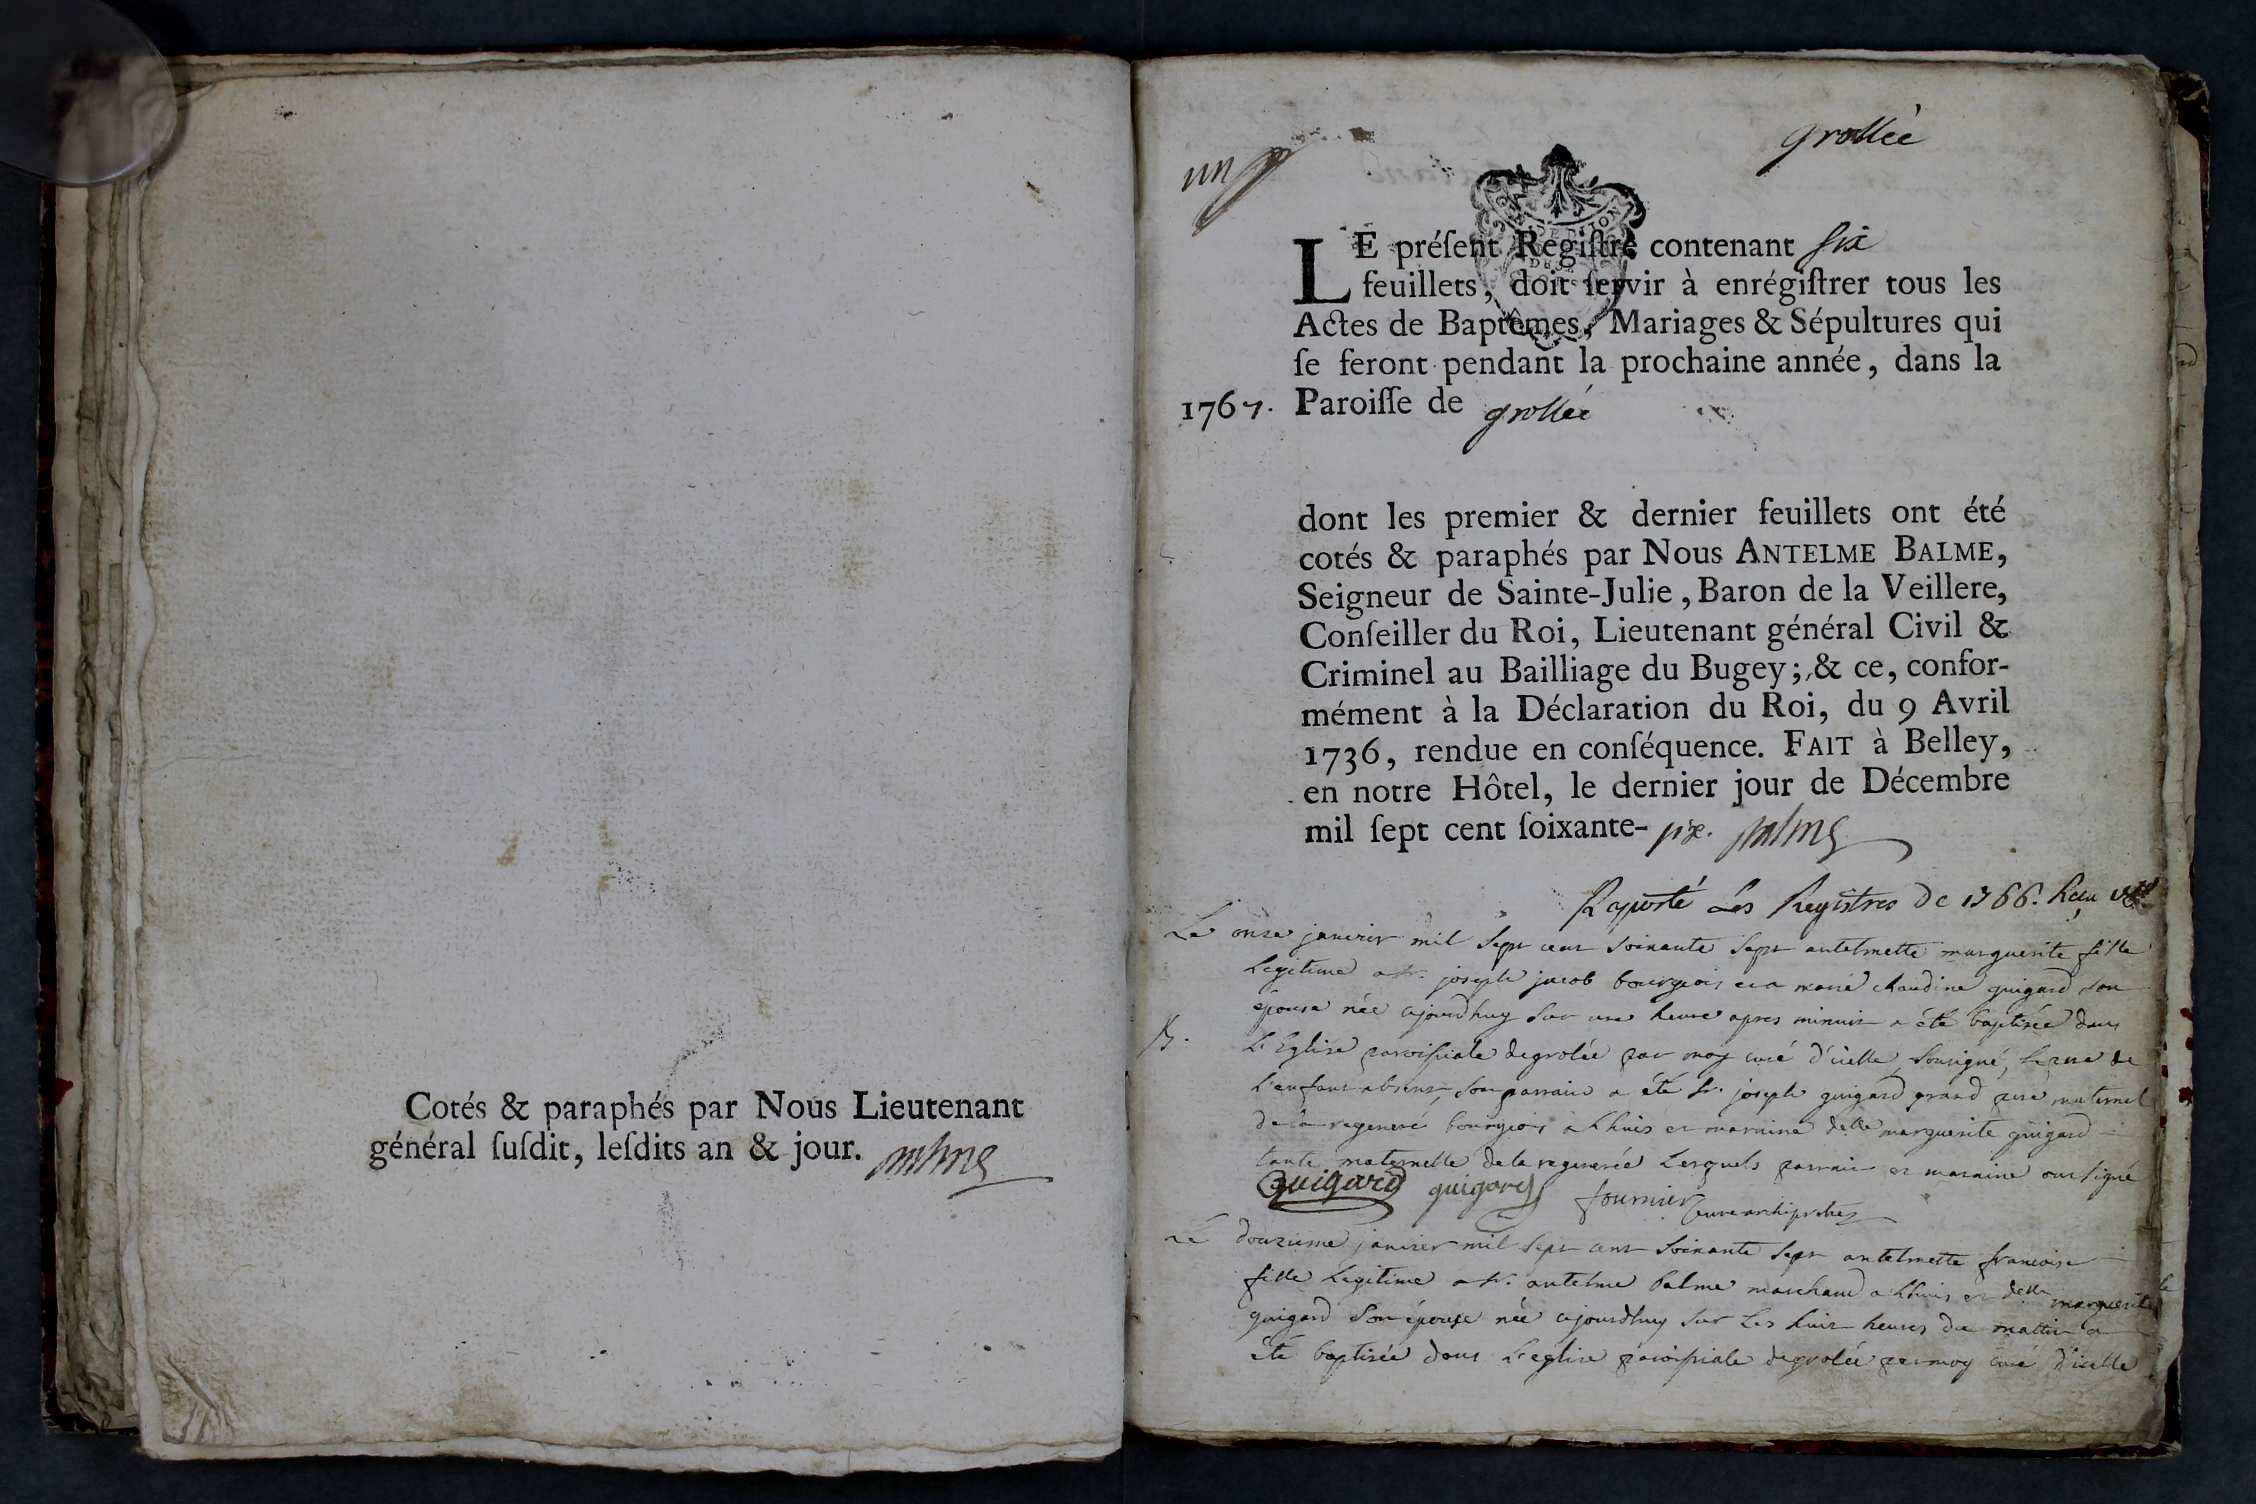 Cotés & paraphés par Nous Lieutenant
général ſuſdit, leſdits an & jour. Balme
un
grollée
LE préſent Regiſtre contenant six
feuillets, doit ſervir à enrégiſtrer tous les
Actes de Baptêmes, Mariages & Sépultures qui
ſe feront pendant la prochaine année, dans la
1767. Paroiſſe de grollée
dont les premier & dernier feuillets ont été
cotés & paraphés par Nous ANTELME BALME,
Seigneur de Sainte-Julie, Baron de la Veillere,
Conſeiller du Roi, Lieutenant général Civil &
Criminel au Bailliage du Bugey; & ce, confor-
mément à la Déclaration du Roi, du 9 Avril
1736, rendue en conſéquence. FAIT à Belley,
en notre Hôtel, le dernier jour de Décembre
mil ſept cent ſoixante- six. Balme
Raporté Les Registres de 1766. Reçu
Le onze janvier mil sept cent soixante sept antelmette marguerite fille
legitime a sr. joseph jacob bourgeois et a marie claudine guigard son
épouse née ajourdhuy sur une heure apres minuit a été baptisée dans
B. L'Eglise paroissiale de grolée par moy curé d'icelle, sousigné, le pere de
L'enfant absent, son parrain a été sr. joseph guigard grand pere maternel
de la regeneré bourgeois a Lhuis et maraine delle marguerite guigard
tante maternelle de la regenerée Lesquels parrain et maraine ont signé
Guigard guigard fournier curé archiprêtre
Le douzieme janvier mil sept cent soixante sept antelmette francoise
fille legitime a sr. antelme balme marchand a Lhuis et delle marguerite
guigard son épouse née ajourdhuy sur Les huit heures du mattin a
été baptisée dans L'eglise paroissiale de grolée par moy curé d'icelle